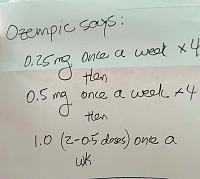 Ozempic says:
0.25mg once a week x4
then
0.5mg once a week x4
then
1.0 (2-0.5 doses) once a
wk